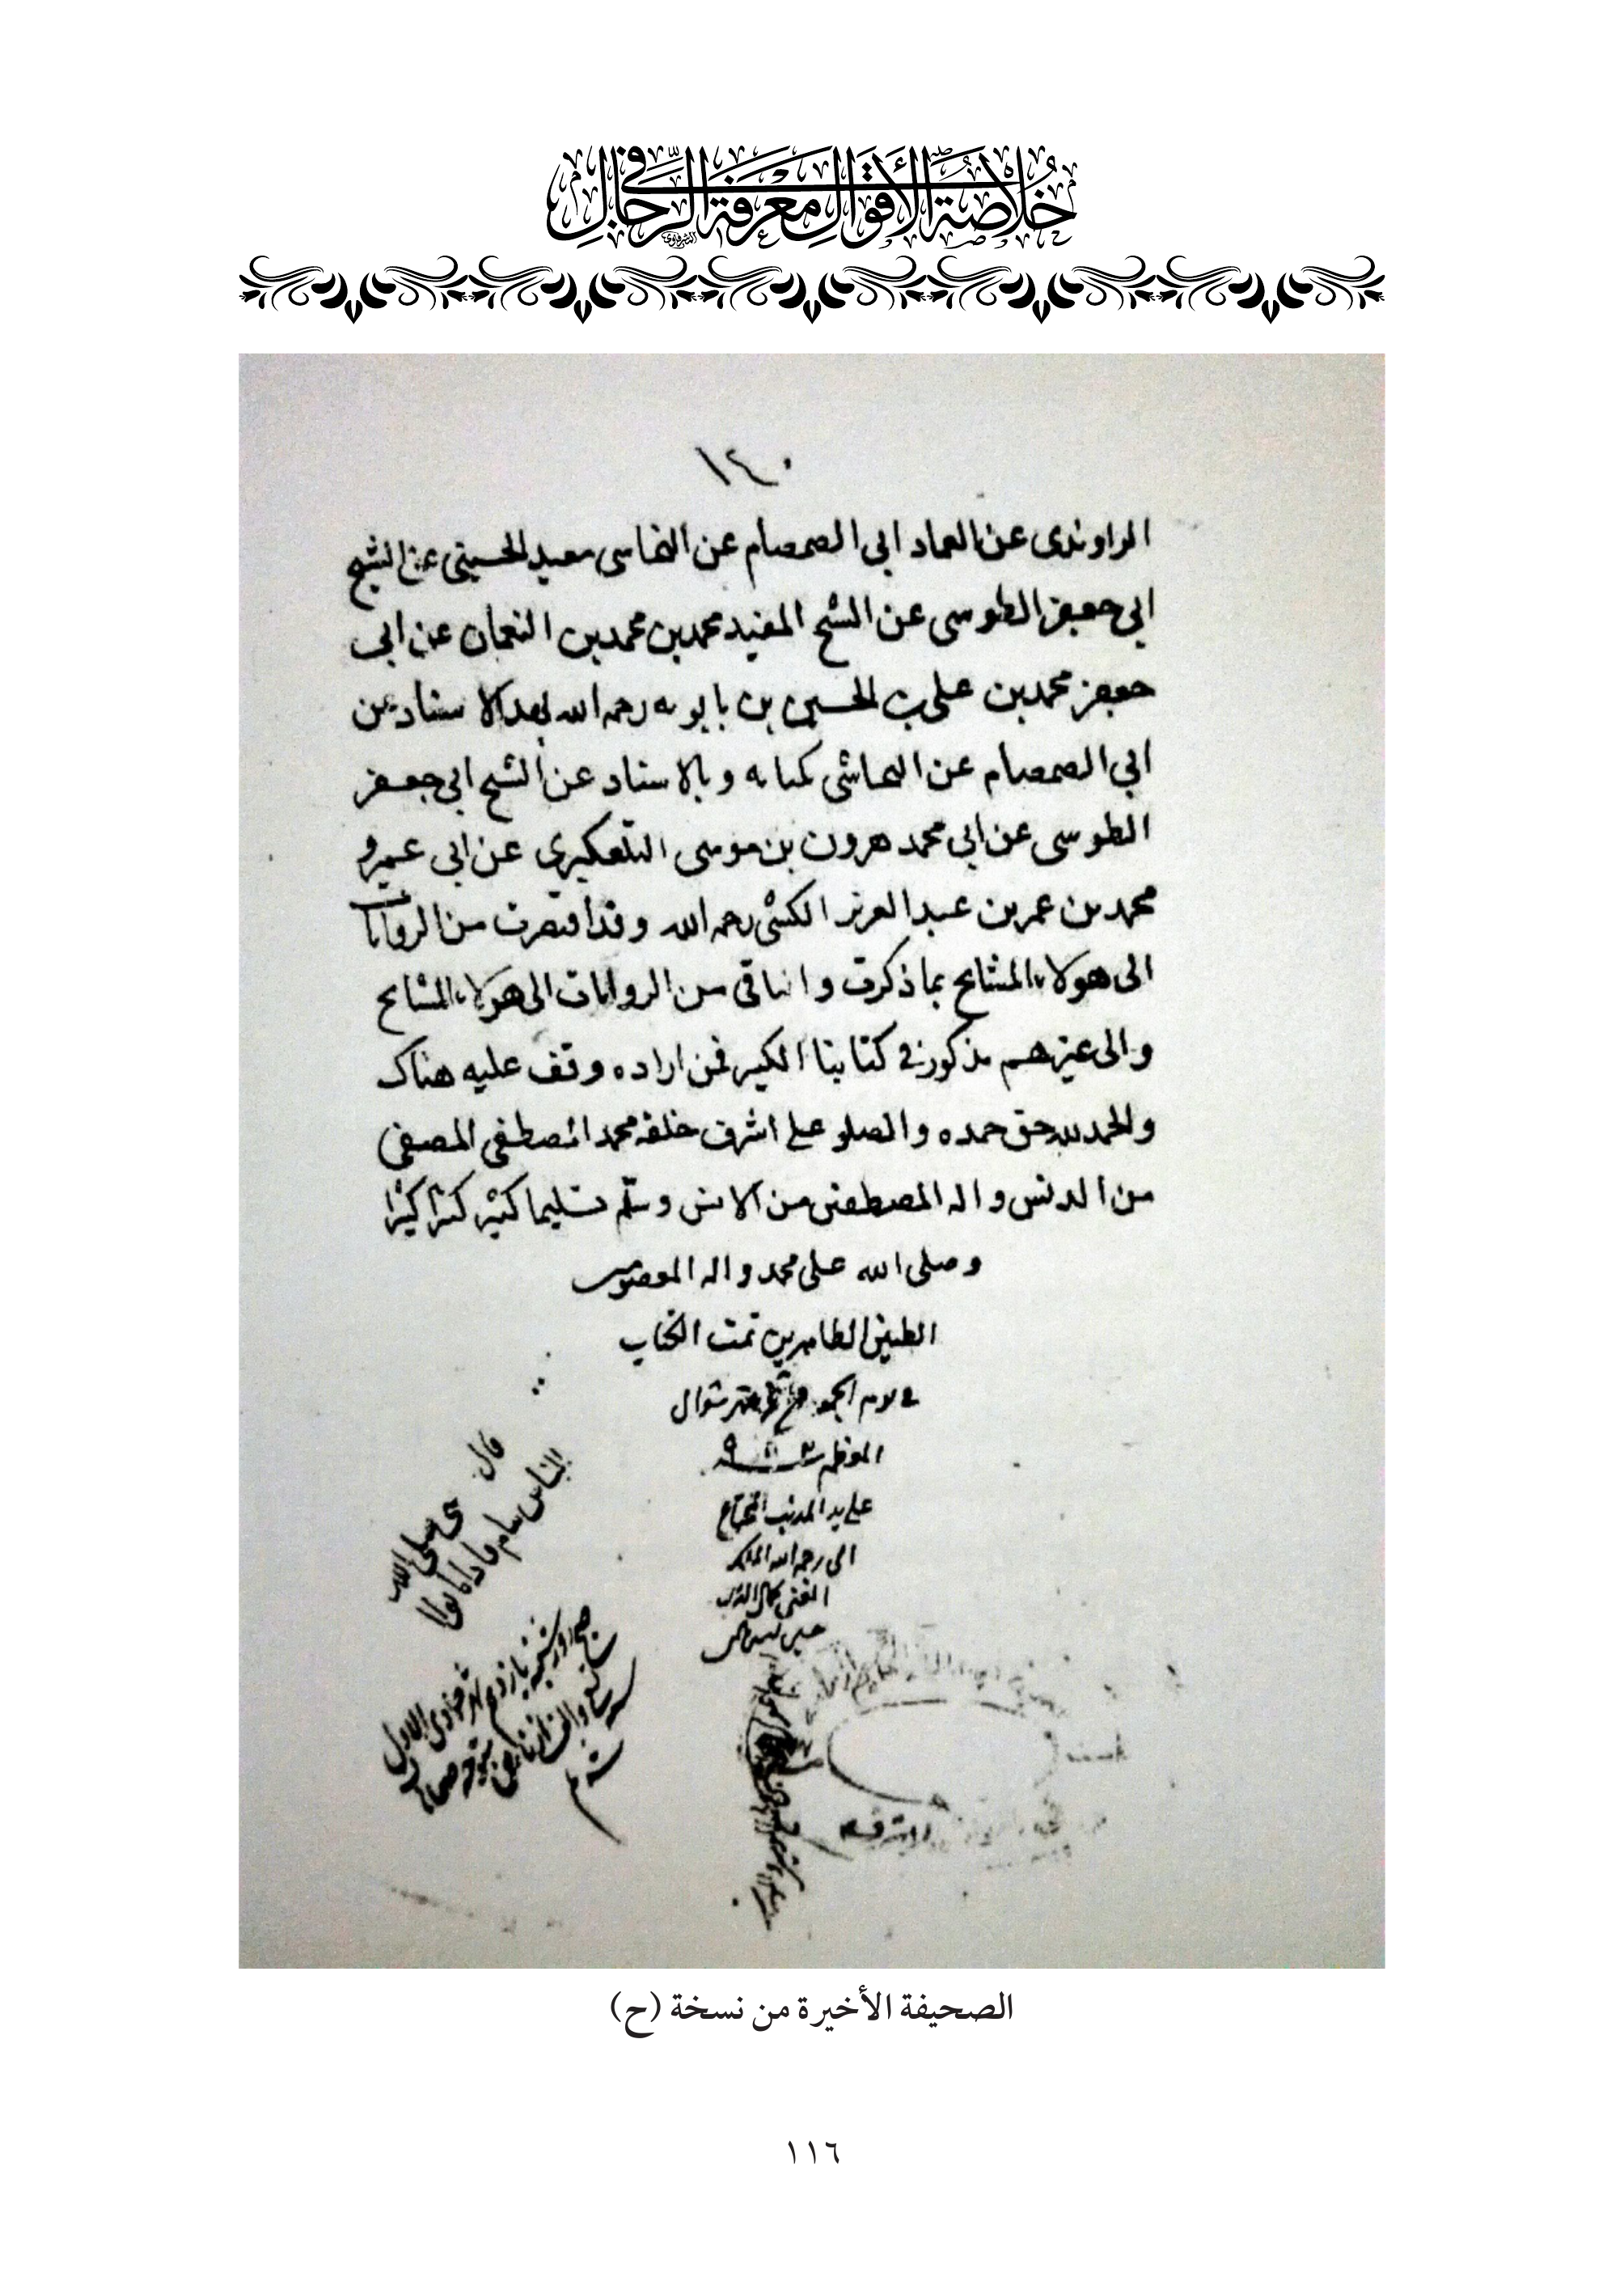 خُلاصَةُ الأَقْوالِ فِي مَعْرِفَةِ الرِّجَالِ
١٤٠
الراوندى عن العماد ابى الصمصام عن النجاسى معبد الحسينى عن الشيخ
ابى جعفر الطوسى عن الشيخ المفيد محمد بن محمد بن النعمان عن ابى
جعفر محمد بن على بن الحسين بن بابويه رحمه الله بهذا الاسناد عن
ابى الصمصام عن النجاشى بكتابه وبالاسناد عن الشيخ ابى جعفر
الطوسى عن ابى محمد هرون بن موسى التلعكبرى عن ابى عمرو
محمد بن عمر بن عبد العزيز الكشى رحمه الله وقد اقتصرت من الروايات
الى هولاء المشايخ بما ذكرت والباقى من الروايات الى هولاء المشايخ
والى غيرهم مذكور فى كتابنا الكبير فمن اراده وقف عليه هناك
والحمد لله حق حمده والصلو على اشرف خلقه محمد المصطفى المصفى
من الدنس واله المصطفين من الانس وسلم تسليما كثير كثرا كثيرا
وصلى الله على محمد واله المعصومين
الطيبين الطاهرين تمت الكتاب
فى يوم الجمعه شهر شوال
المعظم
على يد المذنب المحتاج
الى رحمه الله الملك
الغنى كمال الدين
قال صلى الله
الناس نيام فاذا ماتوا
الصحيفة الأخيرة من نسخة (ح)
١١٦